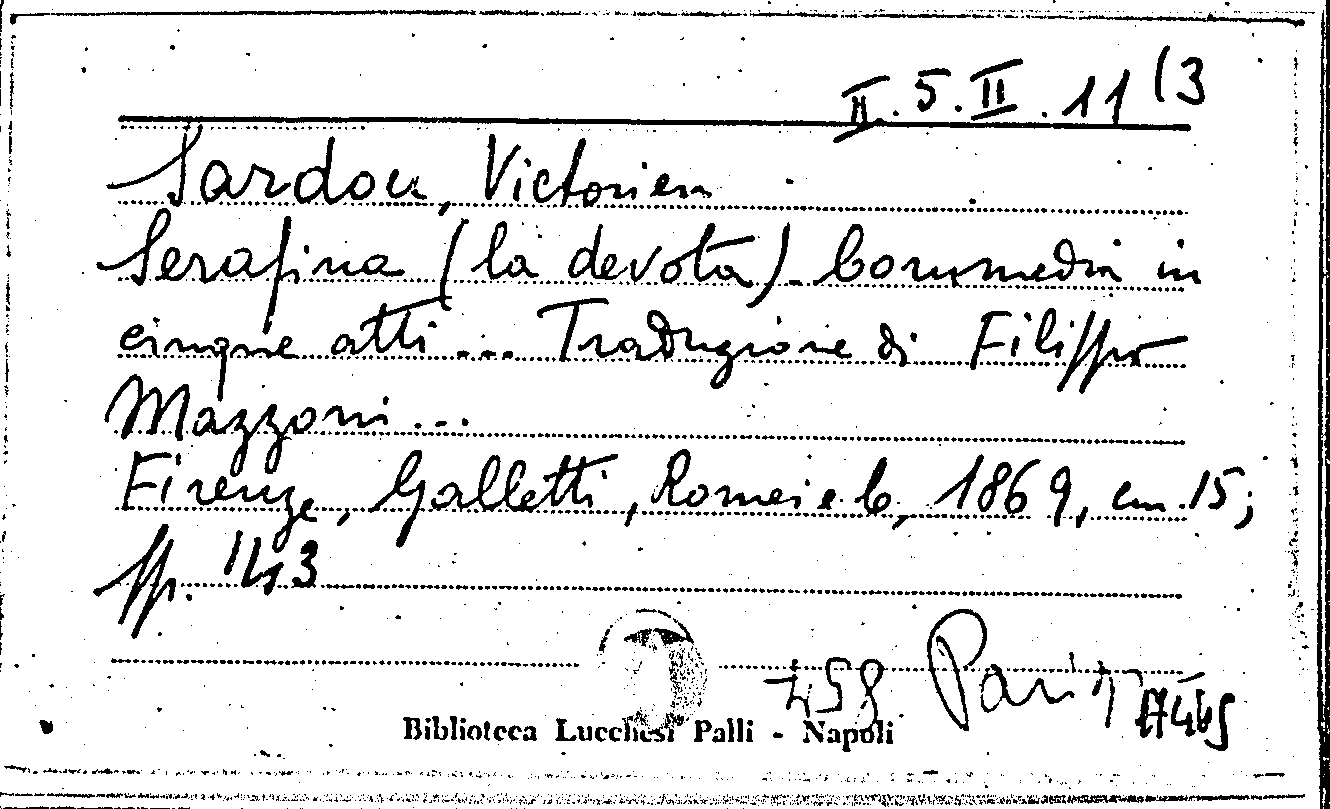 II.5.II.11(3
Sardou, Victorien
Serafina (la devota). Commedia in
cinque atti... Traduzione di Filippo
Mazzoni...
Firenze, Galletti, Romei e C, 1869, cm.15;
pp. 143
458
Biblioteca Lucchesi Palli - Napoli